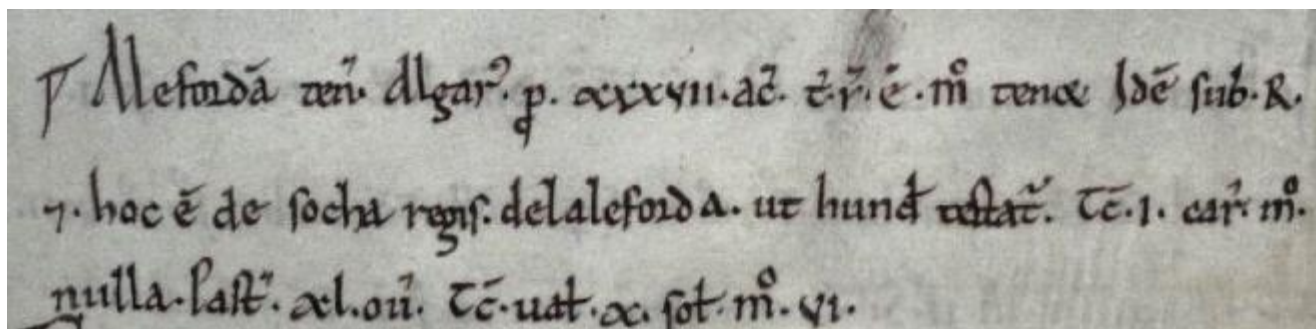 Alefordā ten̄. Algar⁹. p. xxxvii. ac̄. t.r.ē. m̊ tenet Idē sub. R.
⁊. hoc ē de socha regis. de laleforda. ut hund testat̄. Tc̄. i. car̄. m̊.
nulla. Past̄. xl. oū. Tc̄. ual. x. sol. m̊. vi.